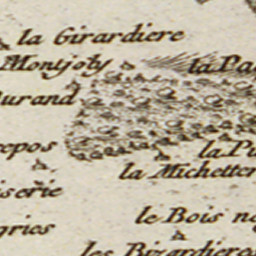 la Girardiere
Montjoly
la Pa
urand
repos
la Pu
la Michetter
iserie
le Bois no
gries
les Bizardieres